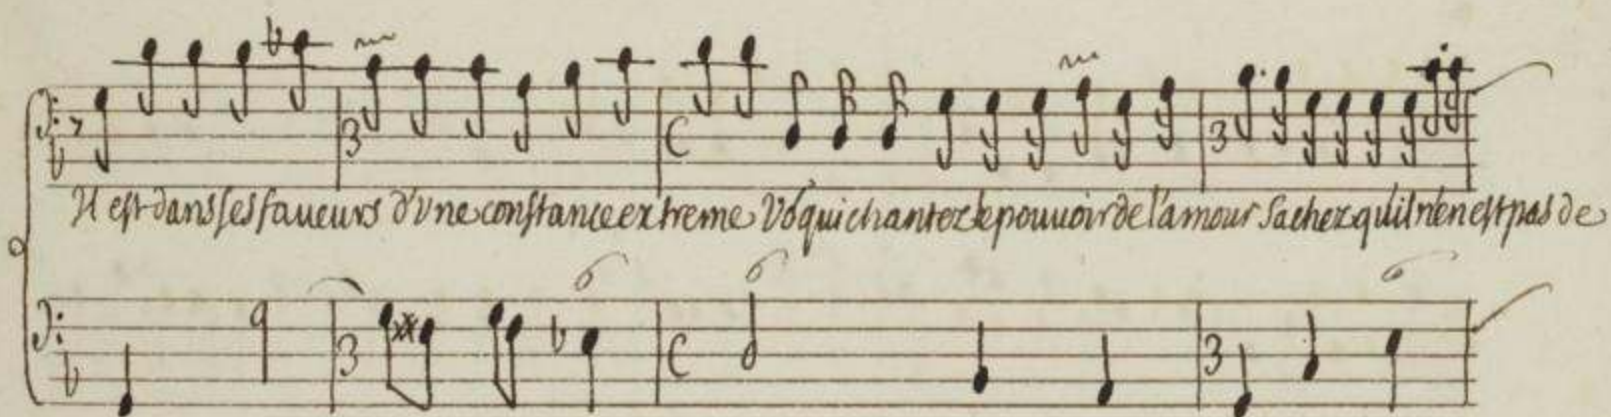 Il est dans ses faueurs d'vne constance extreme Vo9 qui chantez le pouuoir de l'amour Sachez qu'il n'en est pas de